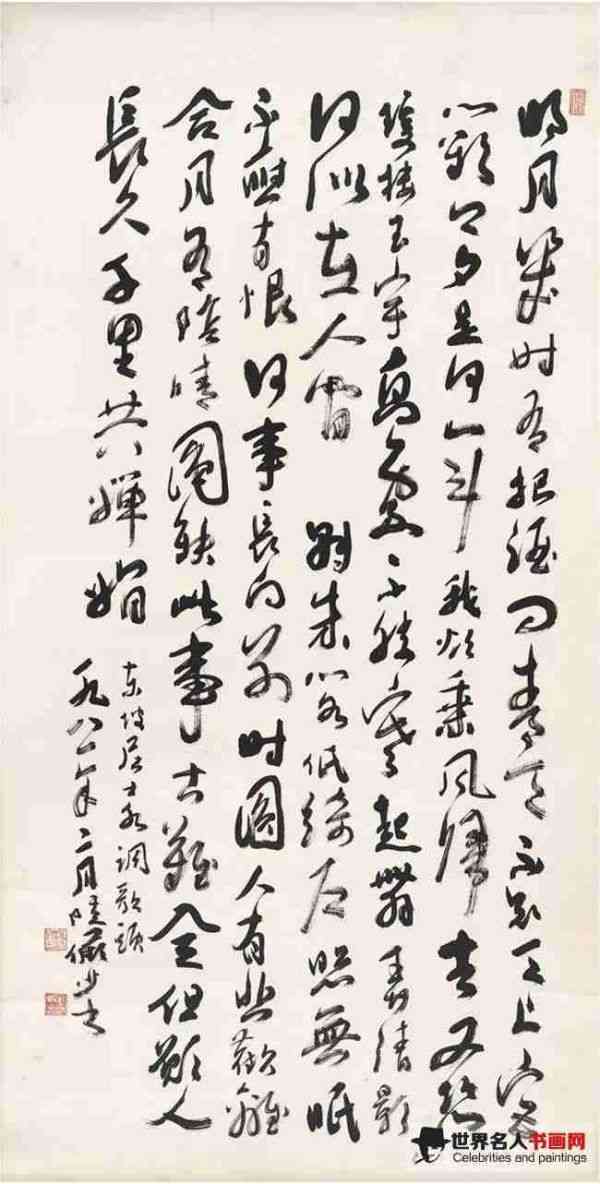 明月幾时有把酒问青天不知天上宫
闕今夕是何年我欲乘风归去又恐
瓊樓玉宇高處不勝寒起舞弄清影
何似在人間 转朱阁低绮户照無眠
不應有恨何事長向别时圓人有悲歡離
合月有陰晴圓缺此事古難全但願人
長久千里共嬋娟
东坡居士水调歌頭
一九八一年二月陸儼少书
世界名人书画网
Celebrities and paintings